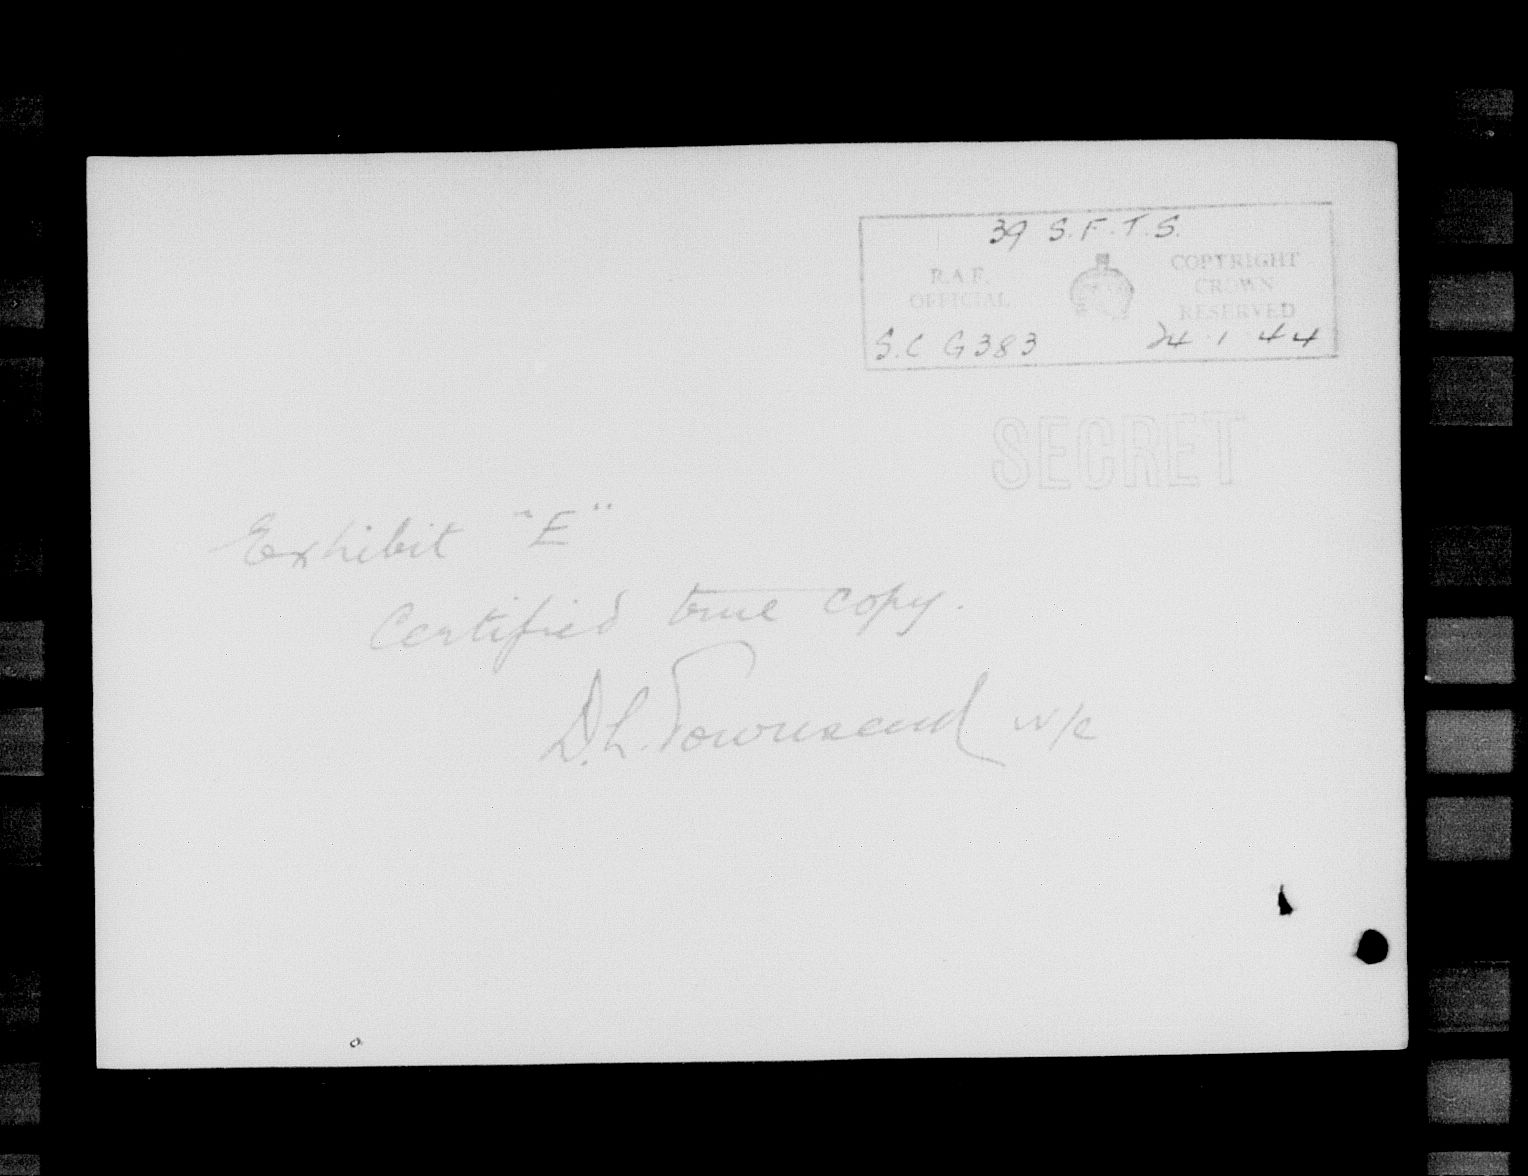 39 S.F.T.S.
R.A.F. OFFICIAL
COPYRIGHT CROWN RESERVED
S.C G383 24.1.44
SECRET
Exhibit "E"
Certified true copy.
D.L. Townsend W/C